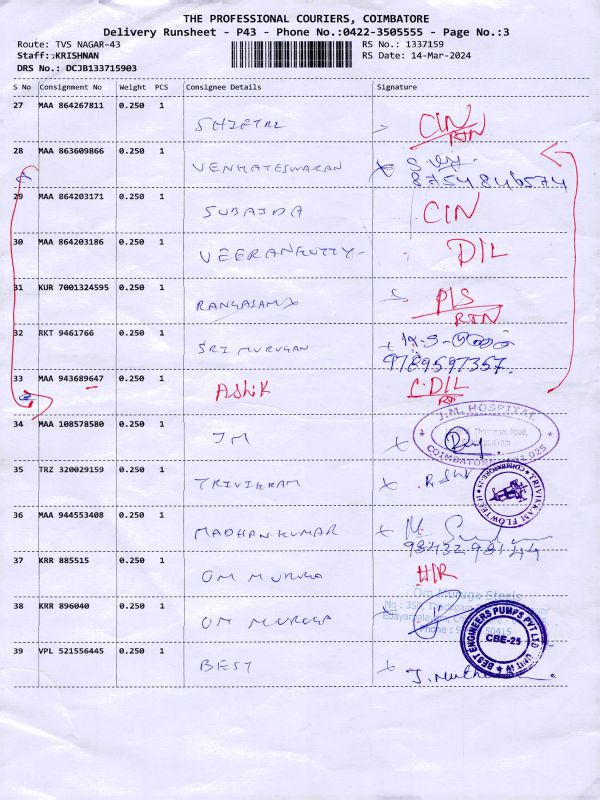 THE PROFESSIONAL COURIERS, COIMBATORE
Delivery Runsheet - P43 - Phone No.:0422-3505555 - Page No.:3
Route: TVS NAGAR-43 RS No.: 1337159
Staff:.KRISHNAN RS Date: 14-Mar-2024
DRS No.: DCJB133715903
S No Consignment No Weight PCS Consignee Details Signature
27 MAA 864267811 0.250 1 CIN
SHIFTRL RTN
28 MAA 863609866 0.250 1
VENKATESWARAN 8754846574
29 MAA 864203171 0.250 1
SUBAIDA CIN
30 MAA 864203186 0.250 1
VEERANKUTTY DIL
31 KUR 7001324595 0.250 1
RANGASAMY PLS
RTN
32 RKT 9461766 0.250 1
SRI MURUGAN 9789597357.
33 MAA 943689647 0.250 1
Ashik C.DIL
J.M. HOSPITAL
Thadagam Road,
COIMBATORE - 641 025
34 MAA 108578580 0.250 1
JM
35 TRZ 320029159 0.250 1
TRIVIKRAM
TRIVIKRAM FLOWTECH
36 MAA 944553408 0.250 1
MADHAN KUMAR
37 KRR 885515 0.250 1
OM MURUGA H/R
Om Muruga Steels
38 KRR 896040 0.250 1
OM MURUGA
BEST ENGINEERS PUMPS PVT LTD
CBE-25
UNIT IV
39 VPL 521556445 0.250 1
BEST